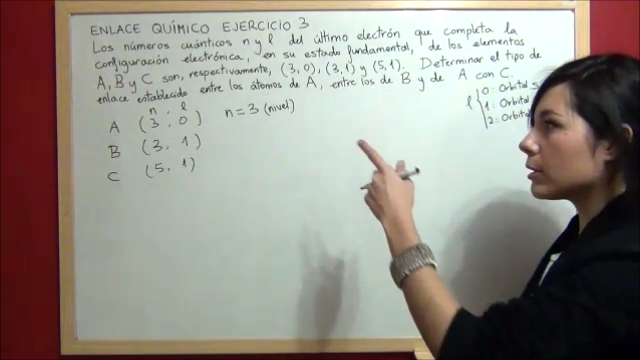 ENLACE QUÍMICO EJERCICIO 3
Los números cuánticos n y l del último electrón que completa la
configuración electrónica, en su estado fundamental, de los elementos
A, B y C son, respectivamente, (3,0), (3,1) y (5,1). Determinar el tipo de
enlace establecido entre los átomos de A, entre los de B y de A con C.
n l
A (3, 0) n = 3 (nivel)
B (3, 1)
C (5, 1)
l { 0: Orbital s
1: Orbital
2: Orbital